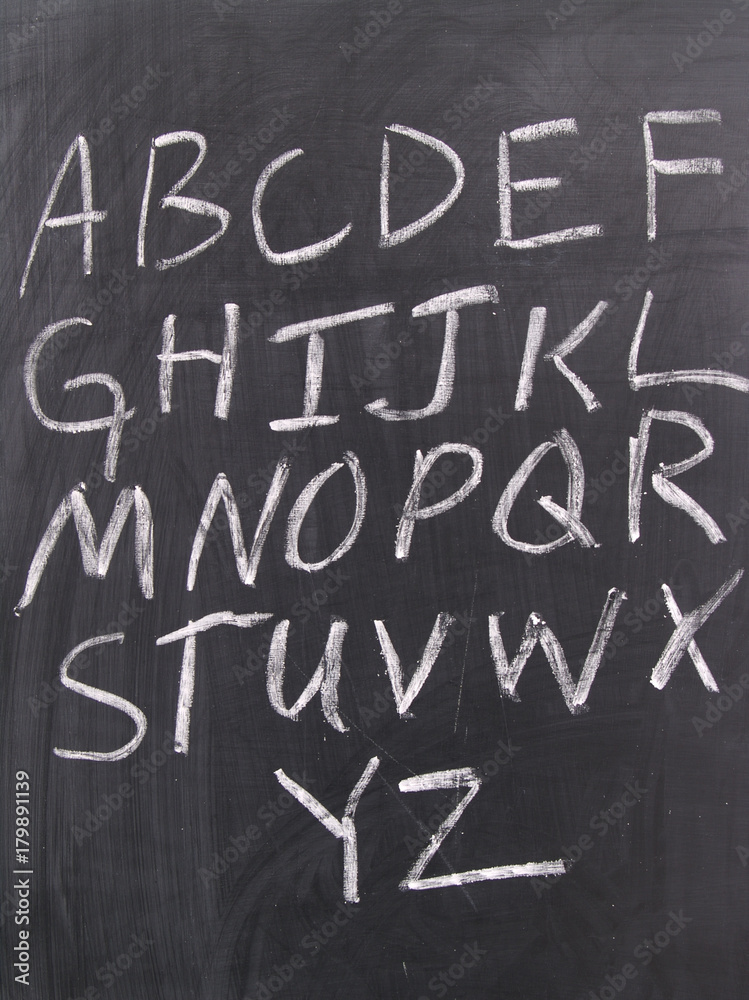 ABCDEF
GHIJKL
MNOPQR
STUVWX
YZ
Adobe Stock | #179891139